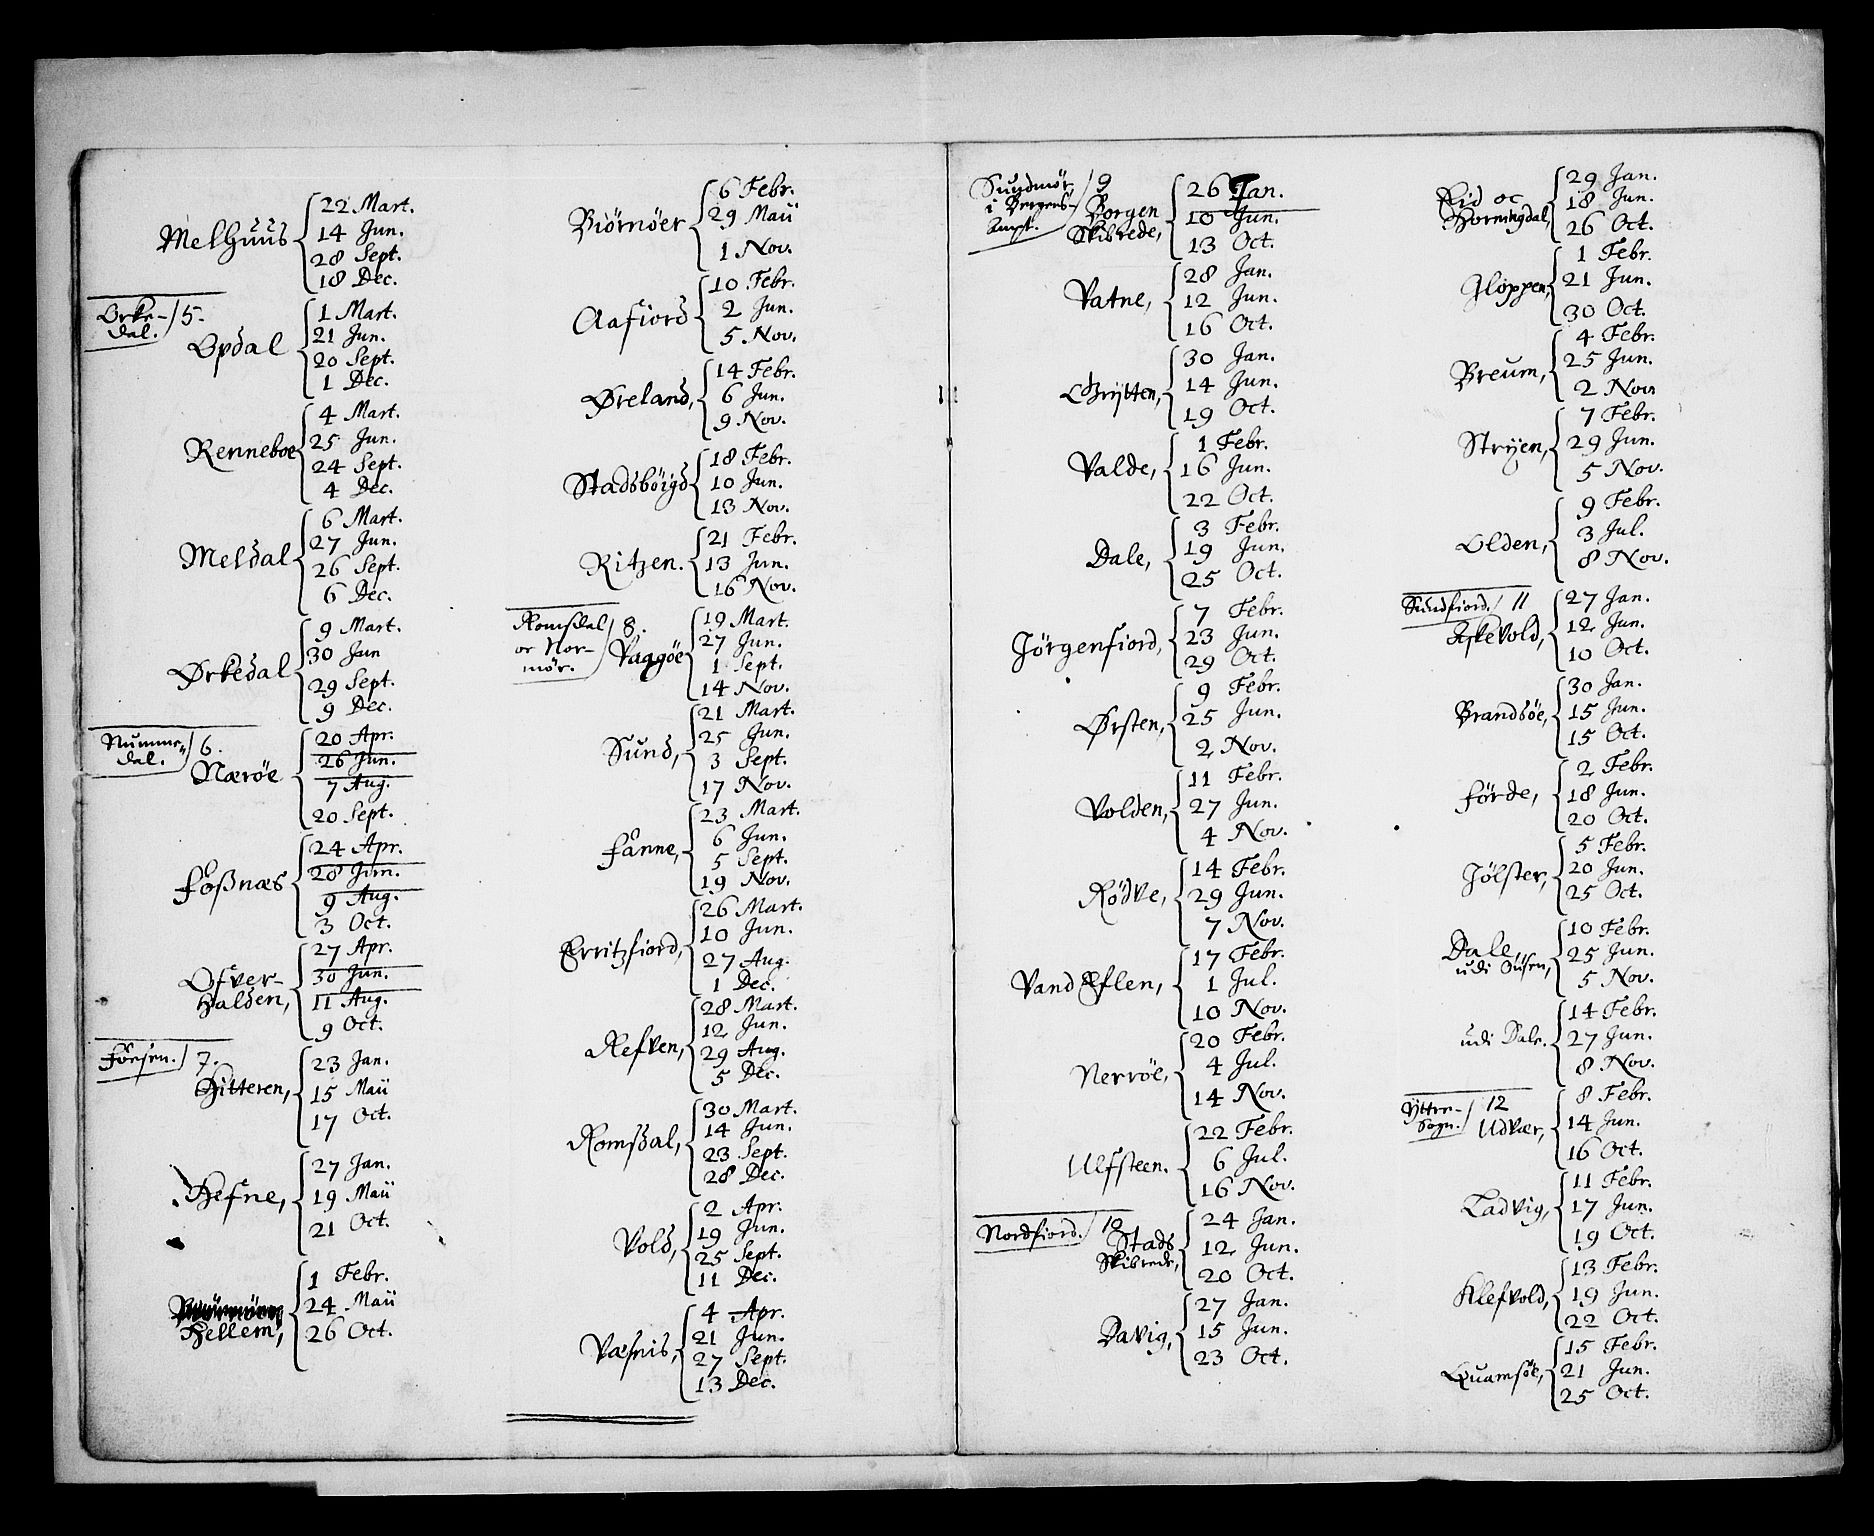 Melhüüs
22 Mart.
14 Jun.
28 Sept.
18 Dec.
Orke-
dal. 5.
Opdal
1 Mart.
21 Jun.
20 Sept.
1 Dec.
Renneboe
4 Mart.
25 Jun.
24 Sept.
4 Dec.
Meldal
6 Mart.
27 Jun.
26 Sept.
6 Dec.
Ørkedal
9 Mart.
30 Jun
29 Sept.
9 Dec.
Numme-
dal. 6.
Nærøe
20 Apr.
26 Jun.
7 Aug.
20 Sept.
Foßnæs
24 Apr.
28 Jun.
9 Aug.
3 Oct.
Ofver-
halden,
27 Apr.
30 Jun.
11 Aug.
9 Oct.
Foesen. 7.
Hitteren,
23 Jan.
15 Maii
17 Oct.
Hefne,
27 Jan.
19 Maii
21 Oct.
Hellem,
1 Febr.
24 Maii
26 Oct.
Biörnöer
6 Febr.
29 Maii
1 Nov.
Aafiord
10 Febr.
2 Jun.
5 Nov.
Øreland,
14 Febr.
6 Jun.
9 Nov.
Stadsböigd
18 Febr.
10 Jun.
13 Nov.
Ritzen.
21 Febr.
13 Jun.
16 Nov.
Romsdal
oc Nor-
mør. 8.
Vaggöe
19 Mart.
27 Jun.
1 Sept.
14 Nov.
Sund,
21 Mart.
25 Jun.
3 Sept.
17 Nov.
Fanne,
23 Mart.
6 Jun.
5 Sept.
19 Nov.
Erritzfiord,
26 Mart.
10 Jun.
27 Aug.
1 Dec.
Refven,
28 Mart.
12 Jun.
29 Aug.
5 Dec.
Romsdal,
30 Mart.
14 Jun.
23 Sept.
28 Dec.
Vold,
2 Apr.
19 Jun.
25 Sept.
11 Dec.
Væfnis,
4 Apr.
21 Jun.
27 Sept.
13 Dec.
Sundmör
i Bergens-
Ampt. 9
Borgen
Skibrede,
26 Jan.
10 Jun.
13 Oct.
Vatne,
28 Jan.
12 Jun.
16 Oct.
Grytten,
30 Jan.
14 Jun.
19 Oct.
Valde,
1 Febr.
16 Jun.
22 Oct.
Dale,
3 Febr.
19 Jun.
25 Oct.
Jörgenfiord,
7 Febr.
23 Jun.
29 Oct.
Ørsten,
9 Febr.
25 Jun.
2 Nov.
Volden,
11 Febr.
27 Jun.
4 Nov.
Rödve,
14 Febr.
29 Jun.
7 Nov.
Vand Eflen,
17 Febr.
1 Jul.
10 Nov.
Nerröe,
20 Febr.
4 Jul.
14 Nov.
Ulfsteen.
22 Febr.
6 Jul.
16 Nov.
Nordfiord. 10
Stads
Skibrede,
24 Jan.
12 Jun.
20 Oct.
Davig,
27 Jan.
15 Jun.
23 Oct.
Eid oc
Horningdal,
29 Jan.
18 Jun.
26 Oct.
Gloppen,
1 Febr.
21 Jun.
30 Oct.
Breum,
4 Febr.
25 Jun.
2 Nov.
Stryen,
7 Febr.
29 Jun.
5 Nov.
Olden,
9 Febr.
3 Jul.
8 Nov.
Sundfiord. 11
Askevold,
27 Jan.
12 Jun.
10 Oct.
Brandsöe,
30 Jan.
15 Jun.
15 Oct.
Förde,
2 Febr.
18 Jun.
20 Oct.
Jölster,
5 Febr.
20 Jun.
25 Oct.
Dale
udi Öüsen,
10 Febr.
25 Jun.
5 Nov.
udi Dale.
14 Febr.
27 Jun.
8 Nov.
Ytter-
Sogn. 12
Udvær,
8 Febr.
14 Jun.
16 Oct.
Ladvig,
11 Febr.
17 Jun.
19 Oct.
Klefvold,
13 Febr.
19 Jun.
22 Oct.
Quamsöe,
15 Febr.
21 Jun.
25 Oct.